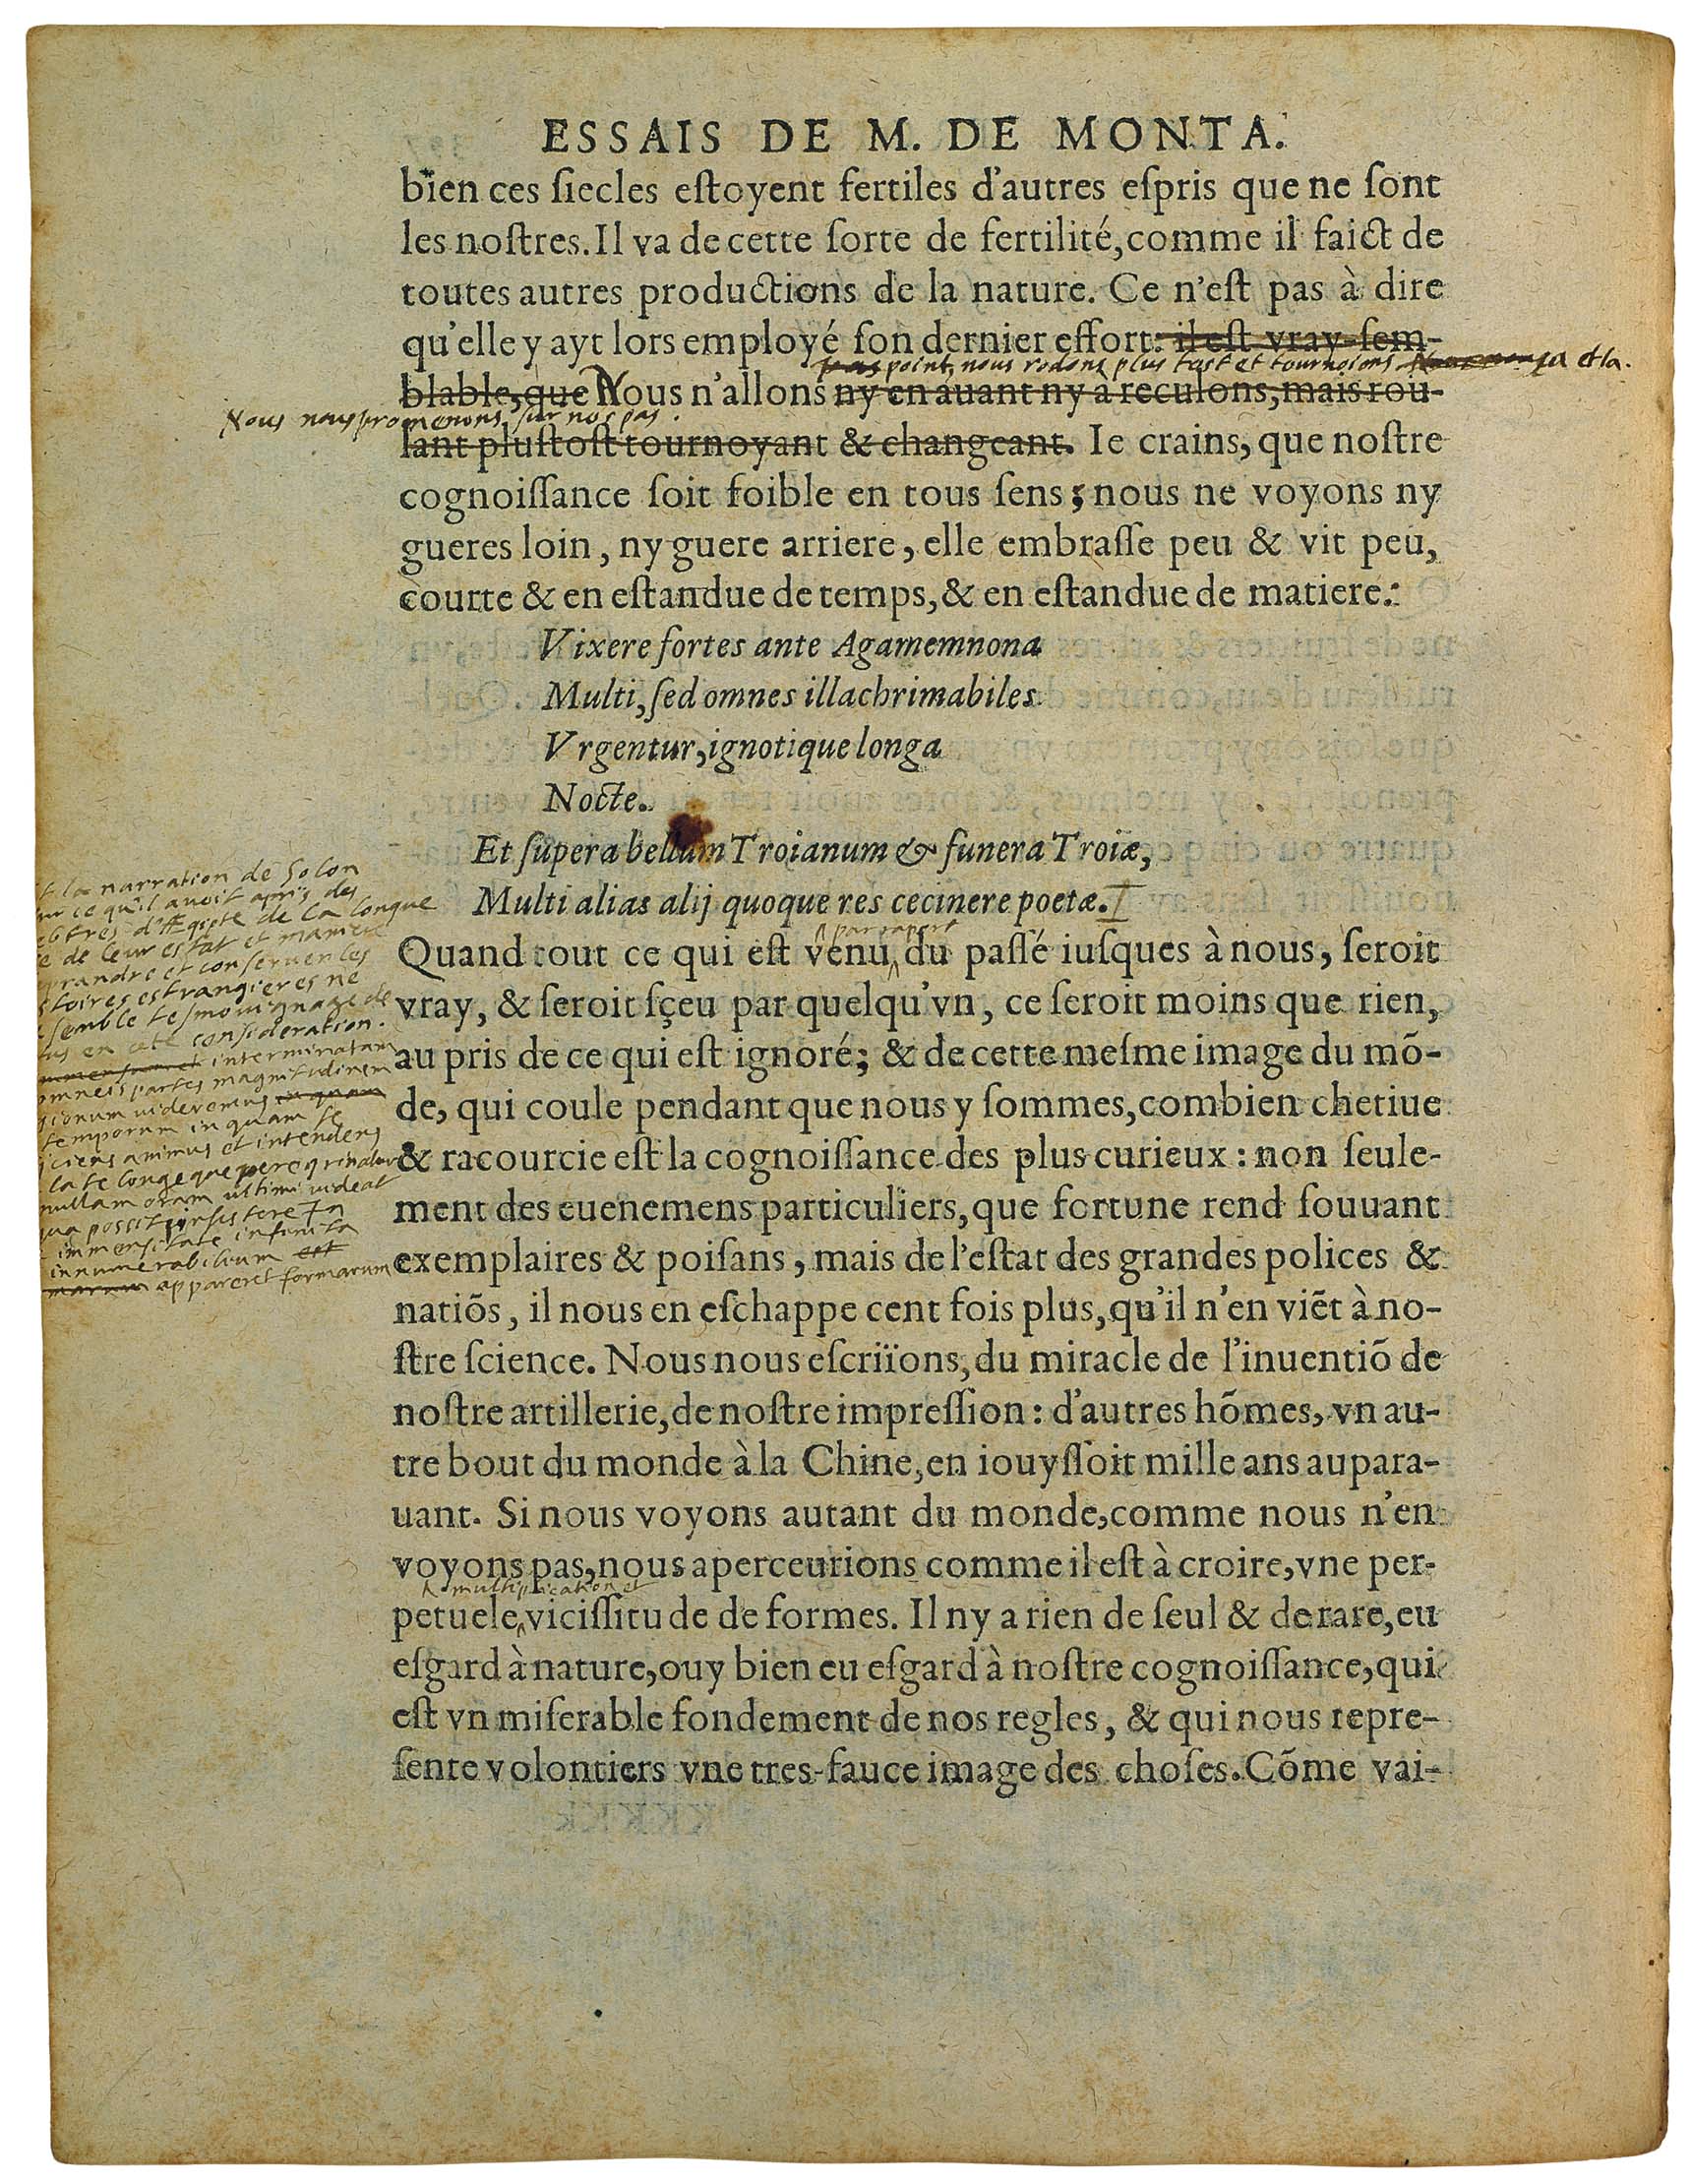 ESSAIS DE M. DE MONTA.
bien ces ſiecles eſtoyent fertiles d'autres eſpris que ne ſont
les noſtres. Il va de cette ſorte de fertilité, comme il faict de
toutes autres productions de la nature. Ce n'eſt pas à dire
qu'elle y ayt lors employé ſon dernier effort: il eſt vray-ſem-
point, nous rodons plus tost et tournoions ça et la.
blable, que Nous n'allons ny en auant ny a reculons, mais rou-
Nous nous promenons sur nos pas.
lant pluſtoſt tournoyant & changeant. Ie crains, que noſtre
cognoiſſance ſoit foible en tous ſens; nous ne voyons ny
gueres loin, ny guere arriere, elle embraſſe peu & vit peu,
courte & en eſtandue de temps, & en eſtandue de matiere:
Vixere fortes ante Agamemnona
Multi, ſed omnes illachrimabiles
Vrgentur, ignotique longa
Nocte.
Et ſupera bellum Troianum & funera Troiæ,
Multi alias alij quoque res cecinere poetæ.
t la narration de Solon
ur ce qu'il avoit apris des
ebtres d'Ægipte de la longue
e de leur estat et maniere
prandre et conserver les
stoires estrangieres ne
semble tesmouignage de
us en cete consideration.
interminatam
omneis partes magnitudinem
gionum videremus in quam
temporum in quam se
iciens animus et intendens
late longeque peregrinatur
nullam oram ultimi videat
qua possit insistere In
immensitate infinita
innumerabilium est
appareret formarum
à par raport
Quand tout ce qui eſt venu du paſſé iuſques à nous, ſeroit
vray, & ſeroit ſçeu par quelqu'vn, ce ſeroit moins que rien,
au pris de ce qui eſt ignoré; & de cette meſme image du mõ-
de, qui coule pendant que nous y ſommes, combien chetiue
& racourcie eſt la cognoiſſance des plus curieux: non ſeule-
ment des euenemens particuliers, que fortune rend ſouuant
exemplaires & poiſans, mais de l'eſtat des grandes polices &
natiõs, il nous en eſchappe cent fois plus, qu'il n'en viẽt à no-
ſtre ſcience. Nous nous eſcriïons, du miracle de l'inuentiõ de
noſtre artillerie, de noſtre impreſſion: d'autres hõmes, vn au-
tre bout du monde à la Chine, en iouyſſoit mille ans aupara-
uant. Si nous voyons autant du monde, comme nous n'en
voyons pas, nous aperceurions comme il eſt à croire, vne per-
multiplication et
petuele viciſſitude de formes. Il ny a rien de ſeul & de rare, eu
eſgard à nature, ouy bien eu eſgard à noſtre cognoiſſance, qui
eſt vn miſerable fondement de nos regles, & qui nous repre-
ſente volontiers vne tres-fauce image des choſes. Cõme vai-